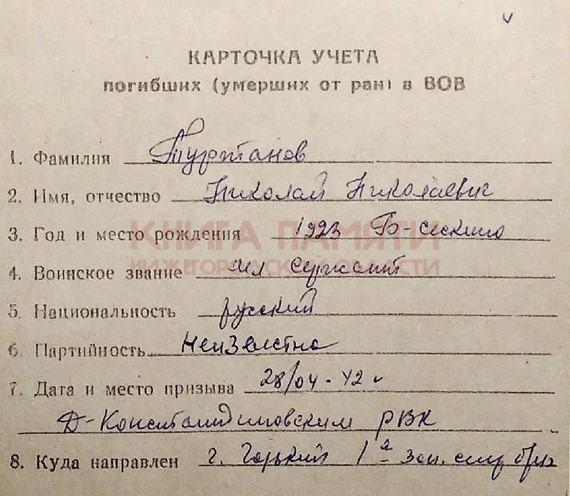 КАРТОЧКА УЧЕТА
погибших (умерших от ран) в ВОВ
1. Фамилия Турттанов
2. Имя, отчество Николай Николаевич
3. Год и место рождения 1923
КНИГА ПАМЯТИ
НИЖЕГОРОДСКОЙ ОБЛАСТИ
4. Воинское звание мл сержант
5. Национальность русский
6. Партийность Неизвестно
7. Дата и место призыва 28/04-42 г
Д-Константиновским РВК
8. Куда направлен г. Горький 1ª зап. стр бриг